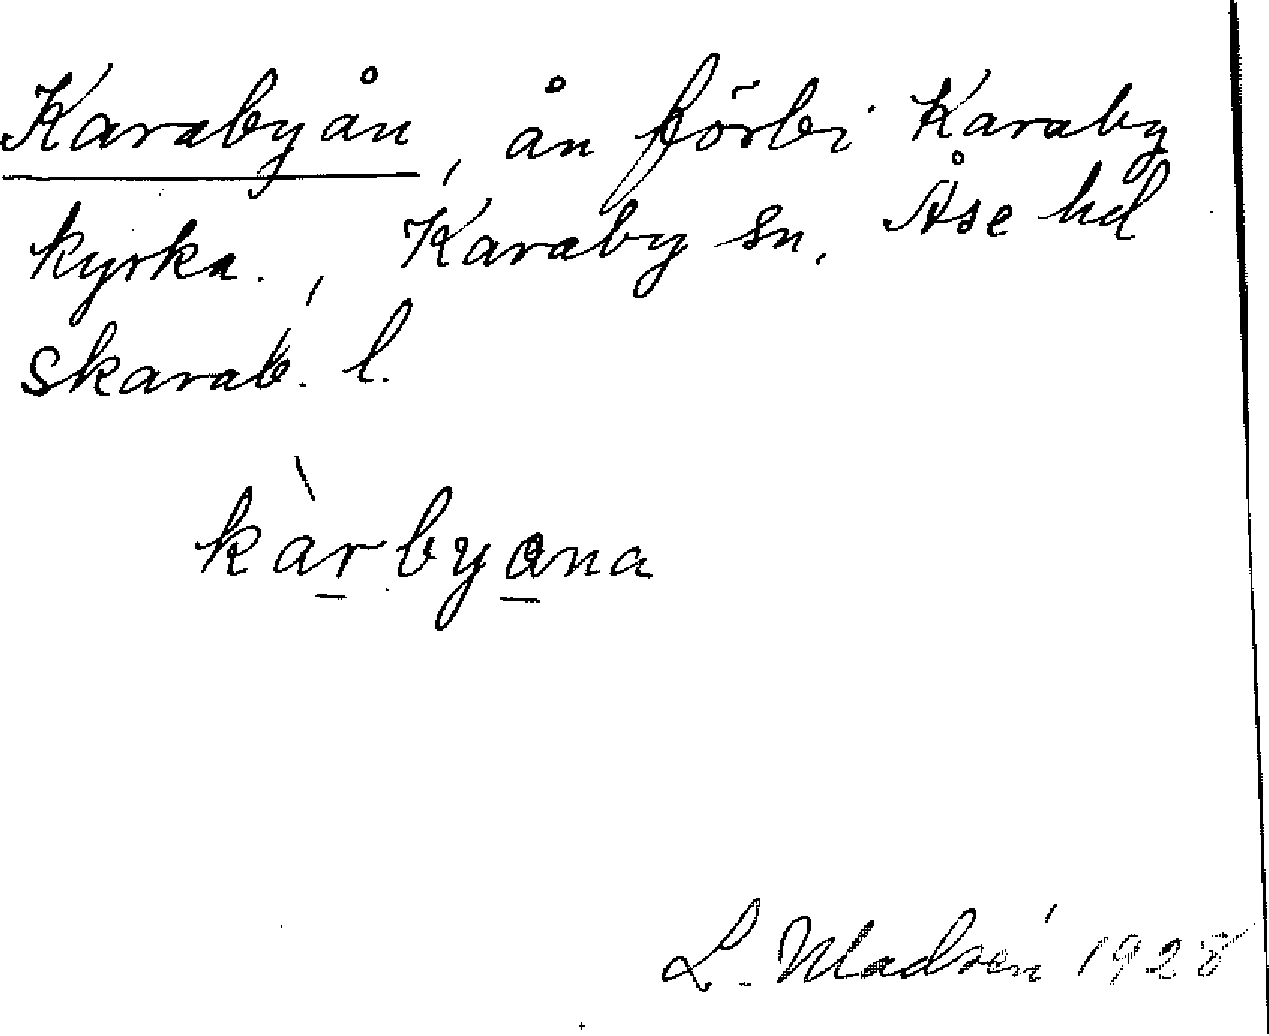 Karabyån, ån förbi Karaby
kyrka., Karaby sn, Åse hd
Skarab. l.
kàrbyana
L. Madsén 1928